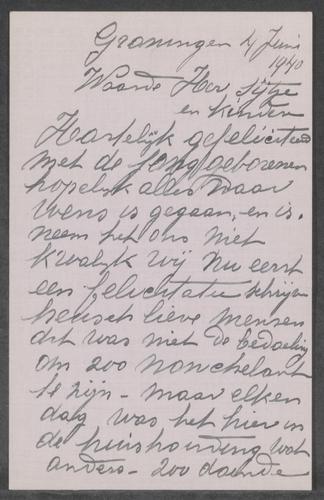 Groningen 4 Juni
1940
Waarde Her Sijtze
en Kinderen
Hartelijk gefeliciteerd
met de jonggeborenen
hopelijk alles naar
wens is gegaan, en is.
neem het ons niet
kwalijk wij nu eerst
een felicitatie schrijven
heusch lieve mensen
dit was niet de bedoeling
om zoo nonchelant
te zijn - maar elken
dag was het hier in
de huishouding wat
anders - zoo